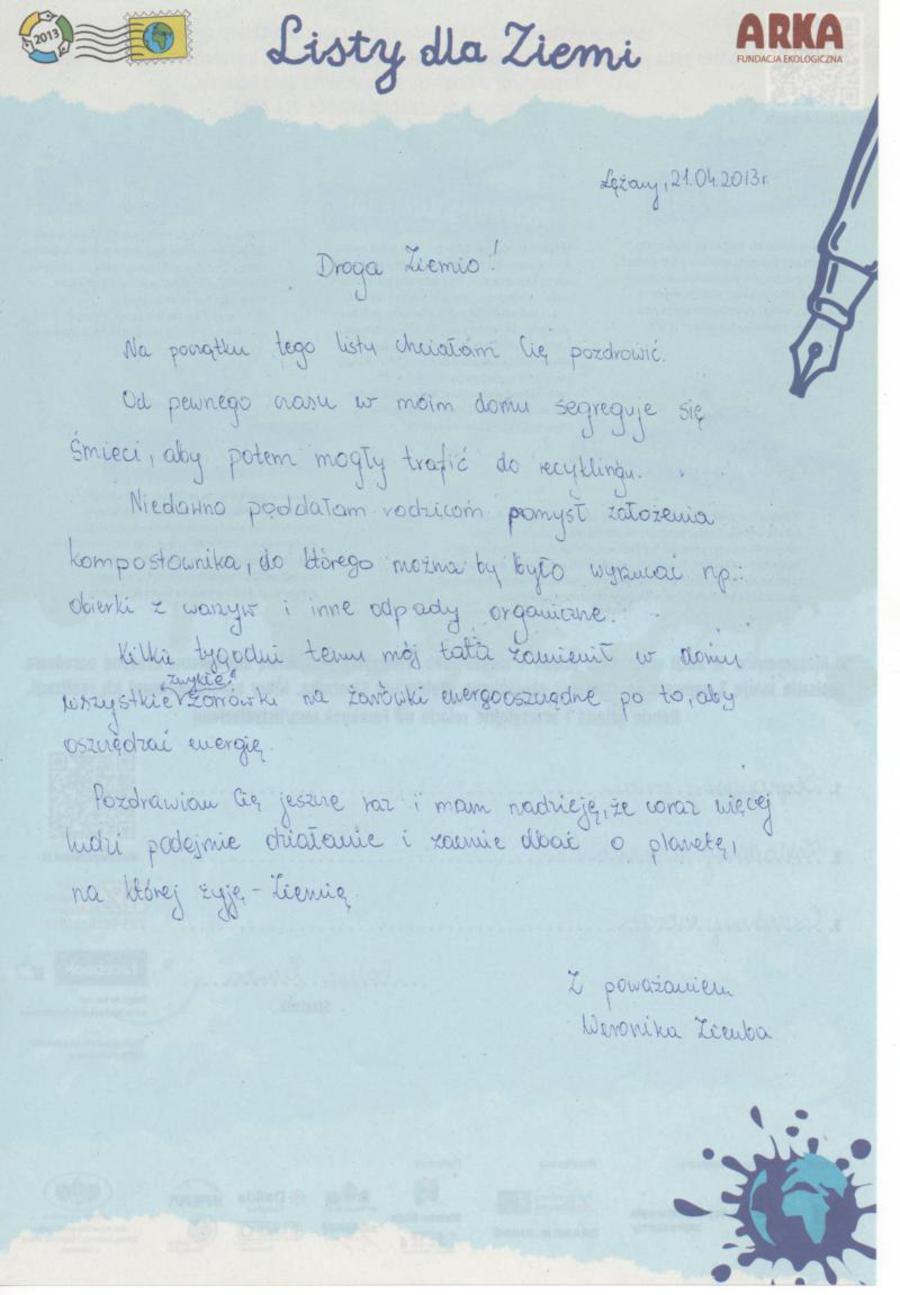 2013
Listy dla Ziemi
ARKA
FUNDACJA EKOLOGICZNA
Łężany, 21.04.2013r.
Droga Ziemio!
Na początku tego listu chciałam Cię pozdrowić.
Od pewnego czasu w moim domu segreguje się
śmieci, aby potem mogły trafić do recyklingu.
Niedawno poddałam rodzicom pomysł założenia
kompostownika, do którego można by było wyrzucać np.:
obierki z warzyw i inne odpady organiczne.
Kilka tygodni temu mój tata zamienił w domu
zwykłe
wszystkie żarówki na żarówki energooszczędne po to, aby
oszczędzać energię.
Pozdrawiam Cię jeszcze raz i mam nadzieję, że coraz więcej
ludzi podejmie działanie i zacznie dbać o planetę,
na której żyję - Ziemię.
Z poważaniem
Weronika